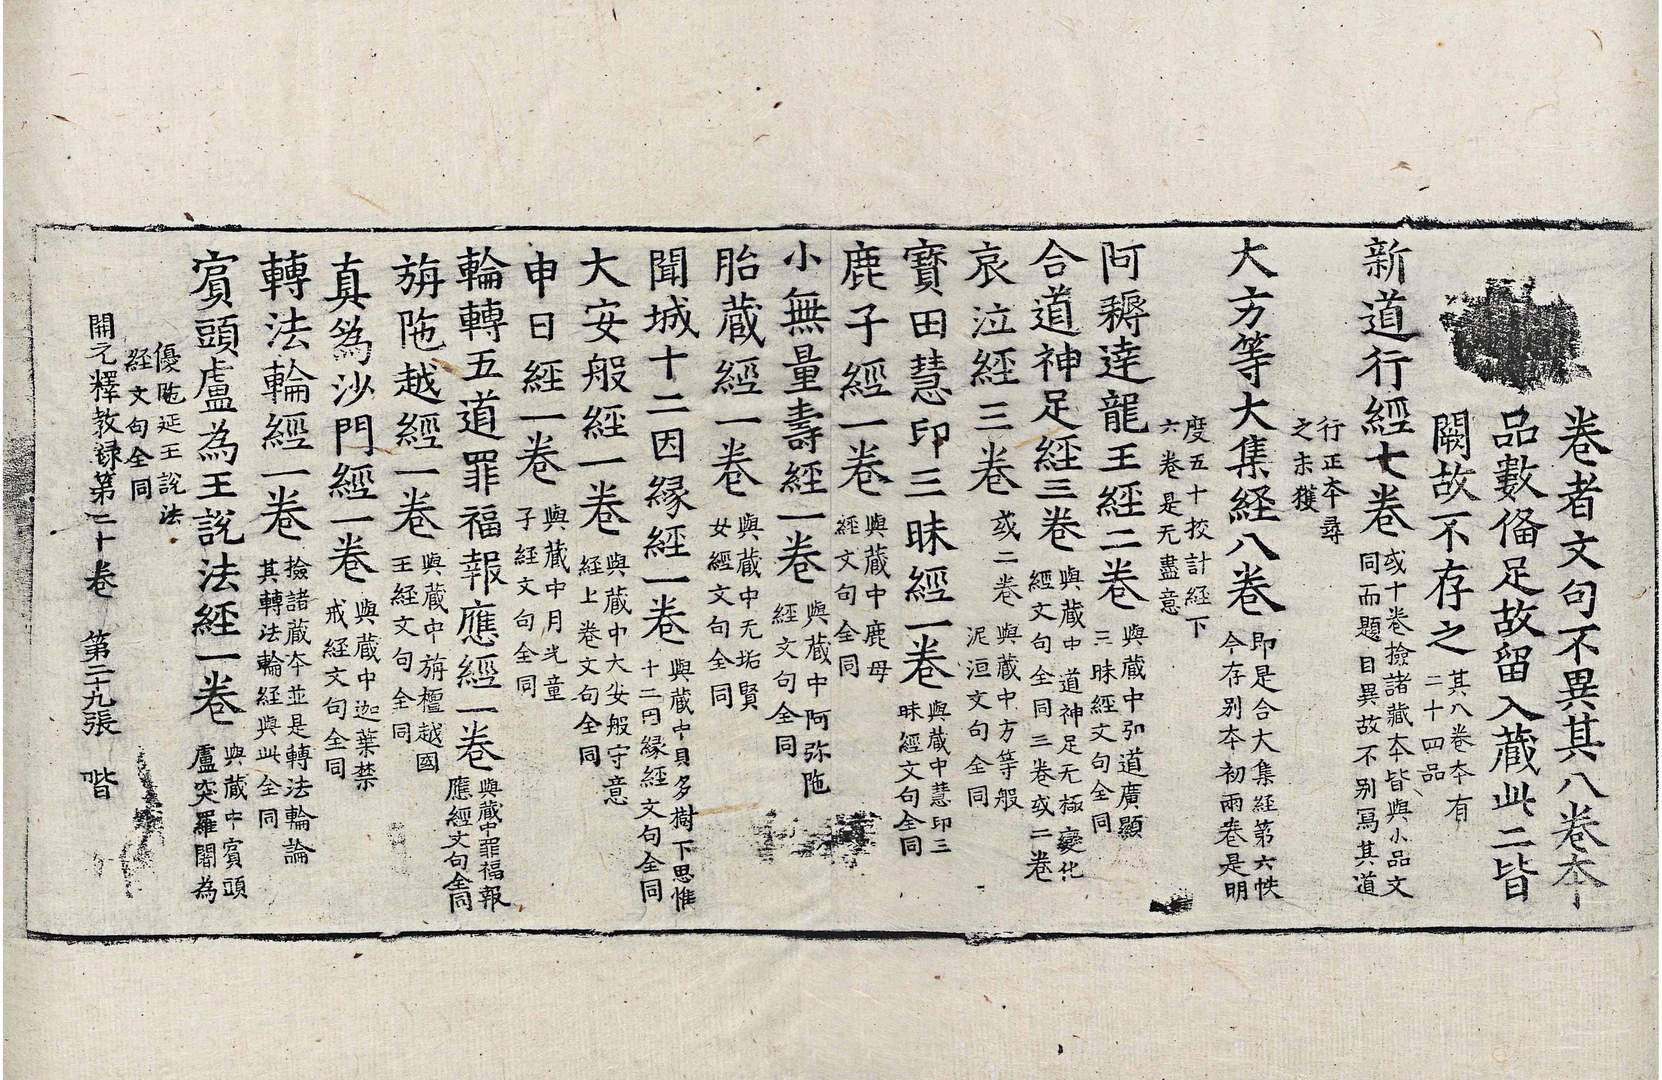 卷者文句不異其八卷夲
品數俻足故留入蔵此二皆
闕故不存之其八卷夲有二十四品
新道行經七卷或十卷撿諸藏本皆與小品文同而題目異故不别寫其道
行正夲尋之未獲
大方等大集経八卷即是合大集經第六帙今存别夲初兩卷是明
度五十挍計經下六卷是无盡意
阿耨達龍王經二卷與蔵中弘道廣顯三昧經文句全同
合道神足經三卷與蔵中道神足无極變化經文句全同三卷或二卷
哀泣經三卷或二卷與蔵中方等般泥洹文句全同
寶田慧印三昧經一卷與蔵中慧印三昧經文句全同
鹿子經一卷與蔵中鹿母經文句全同
小無量壽經一卷與蔵中阿弥陁經文句全同
胎蔵經一卷與蔵中无垢賢女經文句全同
聞城十二因緣經一卷與蔵中貝多樹下思惟十二因縁經文句全同
大安般經一卷與蔵中大安般守意經上卷文句全同
申日經一卷與蔵中月光童子經文句全同
輪轉五道罪福報應經一卷與蔵中罪福報應經文句全同
旃陁越經一卷與蔵中旃檀越國王經文句全同
真為沙門經一卷與蔵中迦葉禁戒經文句全同
轉法輪經一卷撿諸蔵夲並是轉法輪論其轉法輪經與此全同
賔頭盧為王説法經一卷與蔵中賔頭盧突羅闍為
優陁延王説法経文句全同
開元釋教録第二十卷 第二十九張 喈